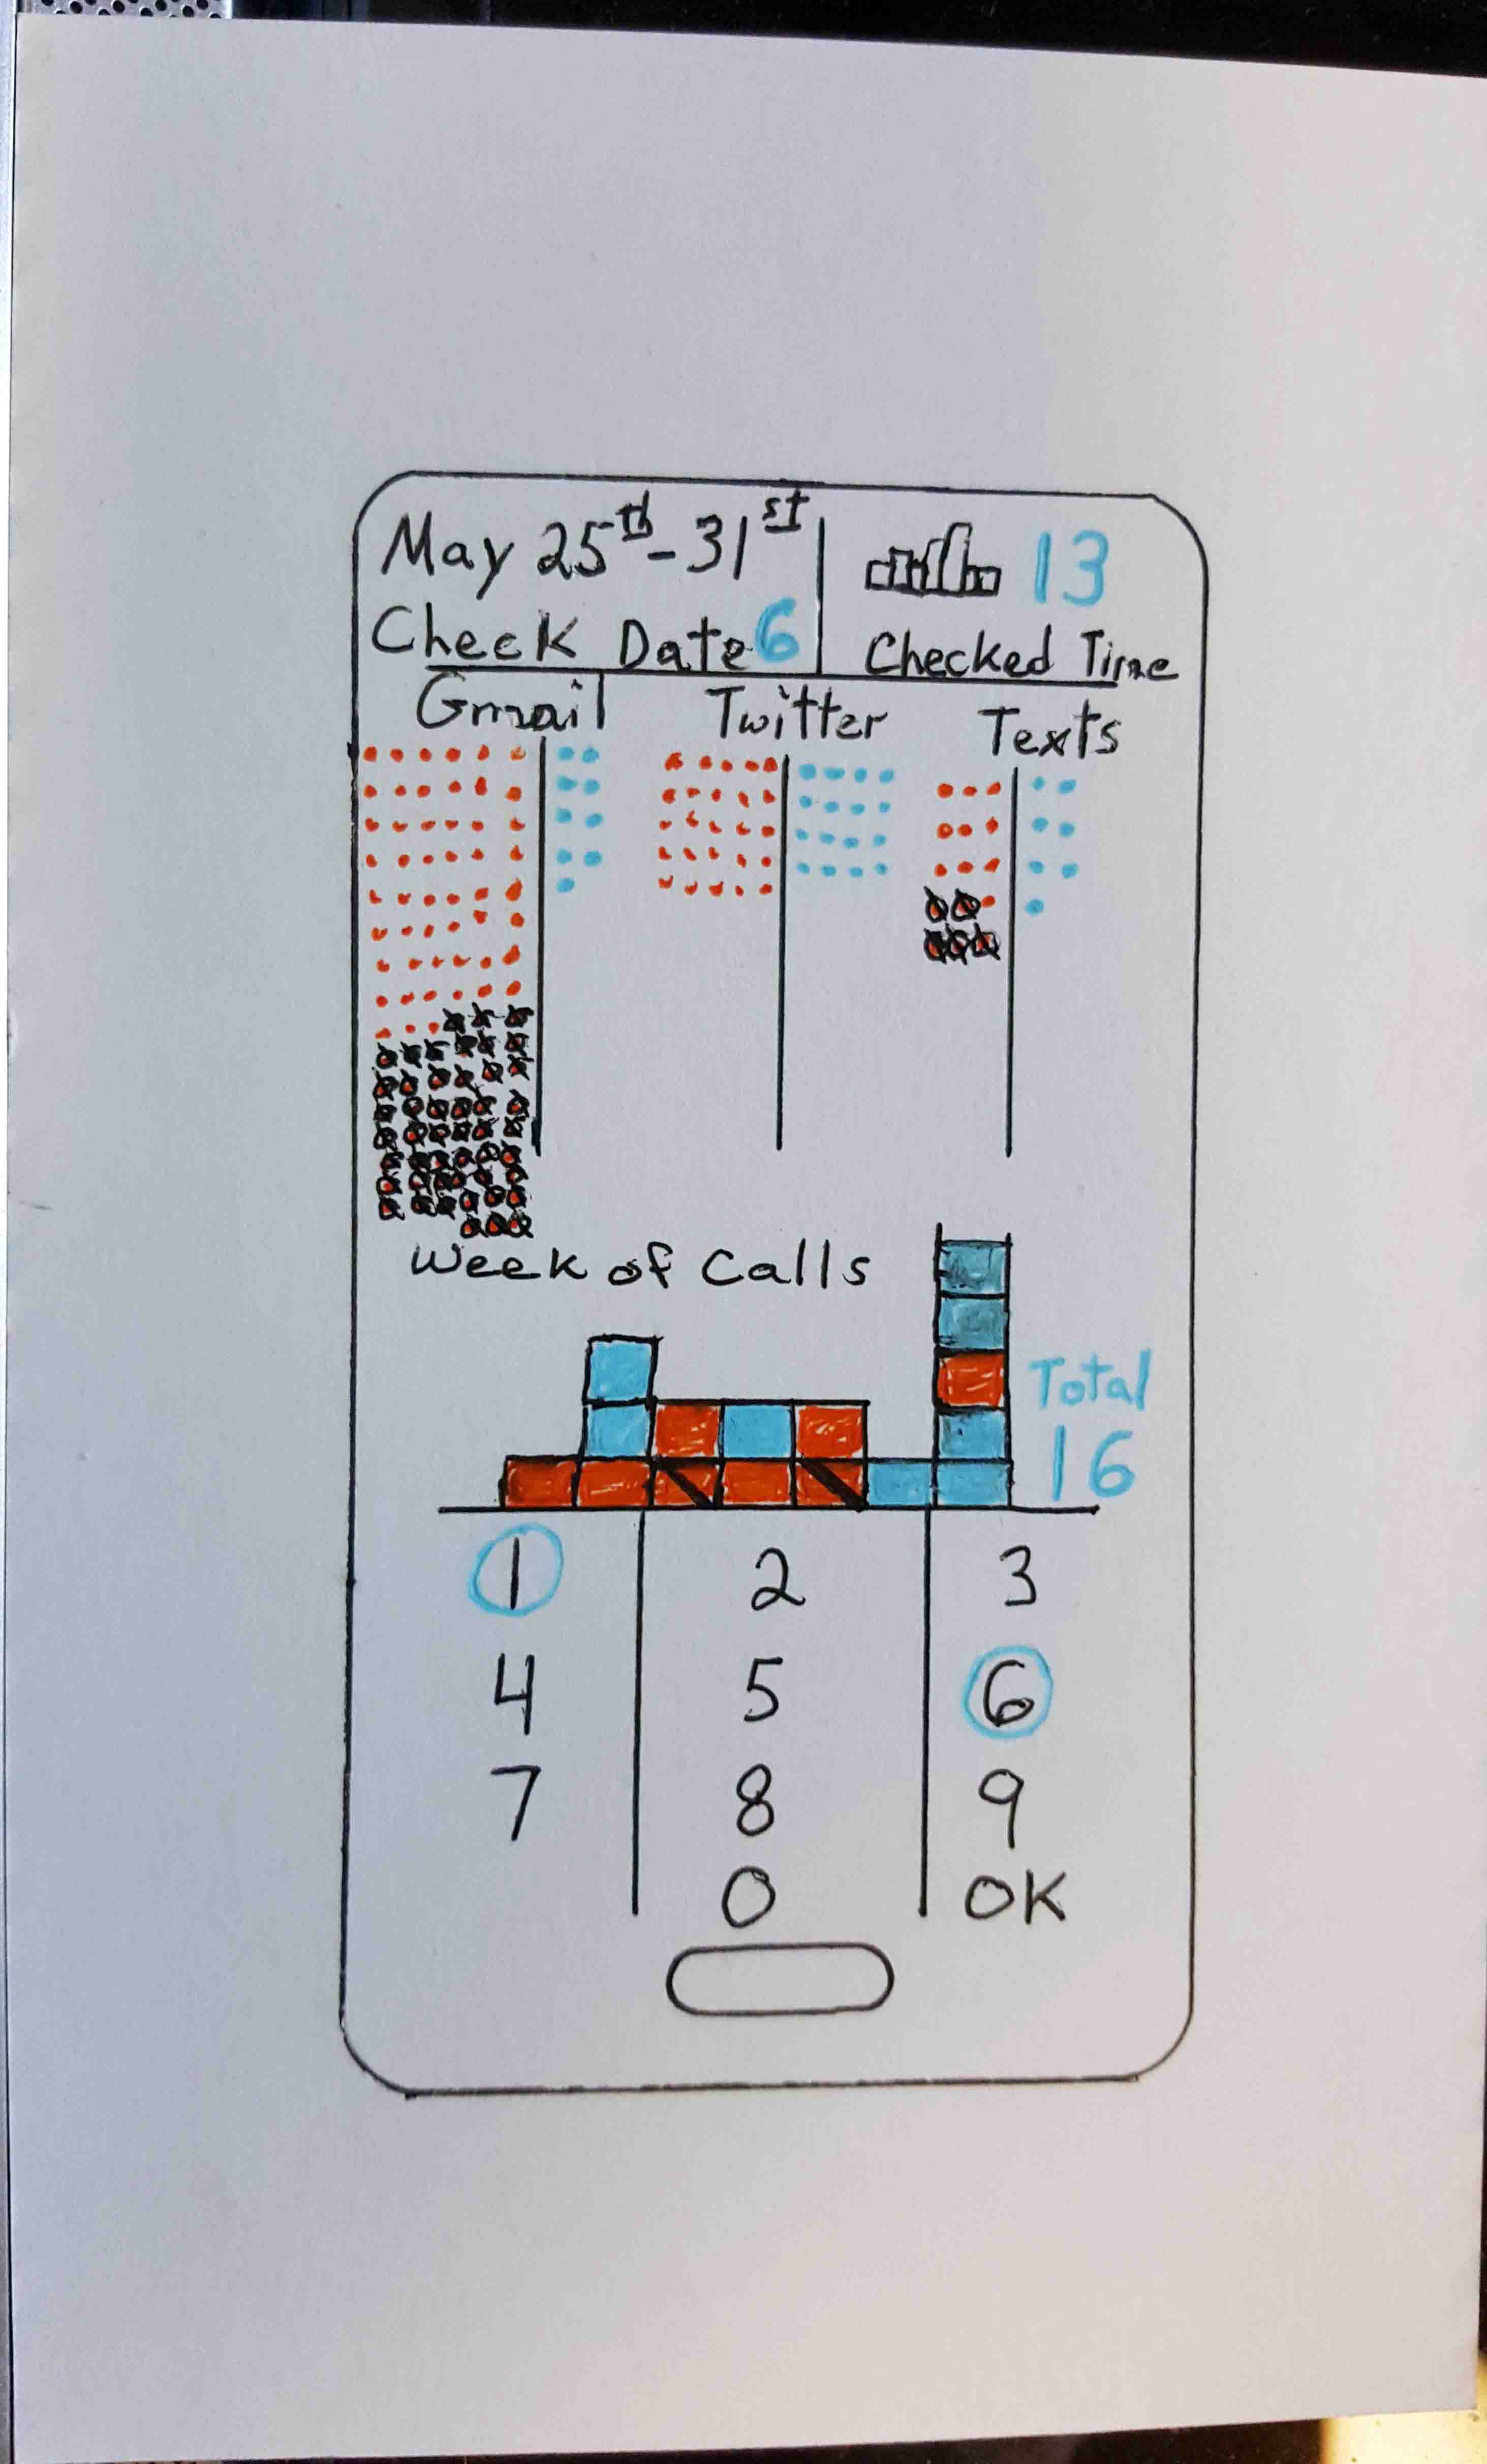 May 25th - 31st
13
Check Date 6
Checked Time
Gmail Twitter Texts
Week of Calls
Total
16
1 2 3
4 5 6
7 8 9
0 OK